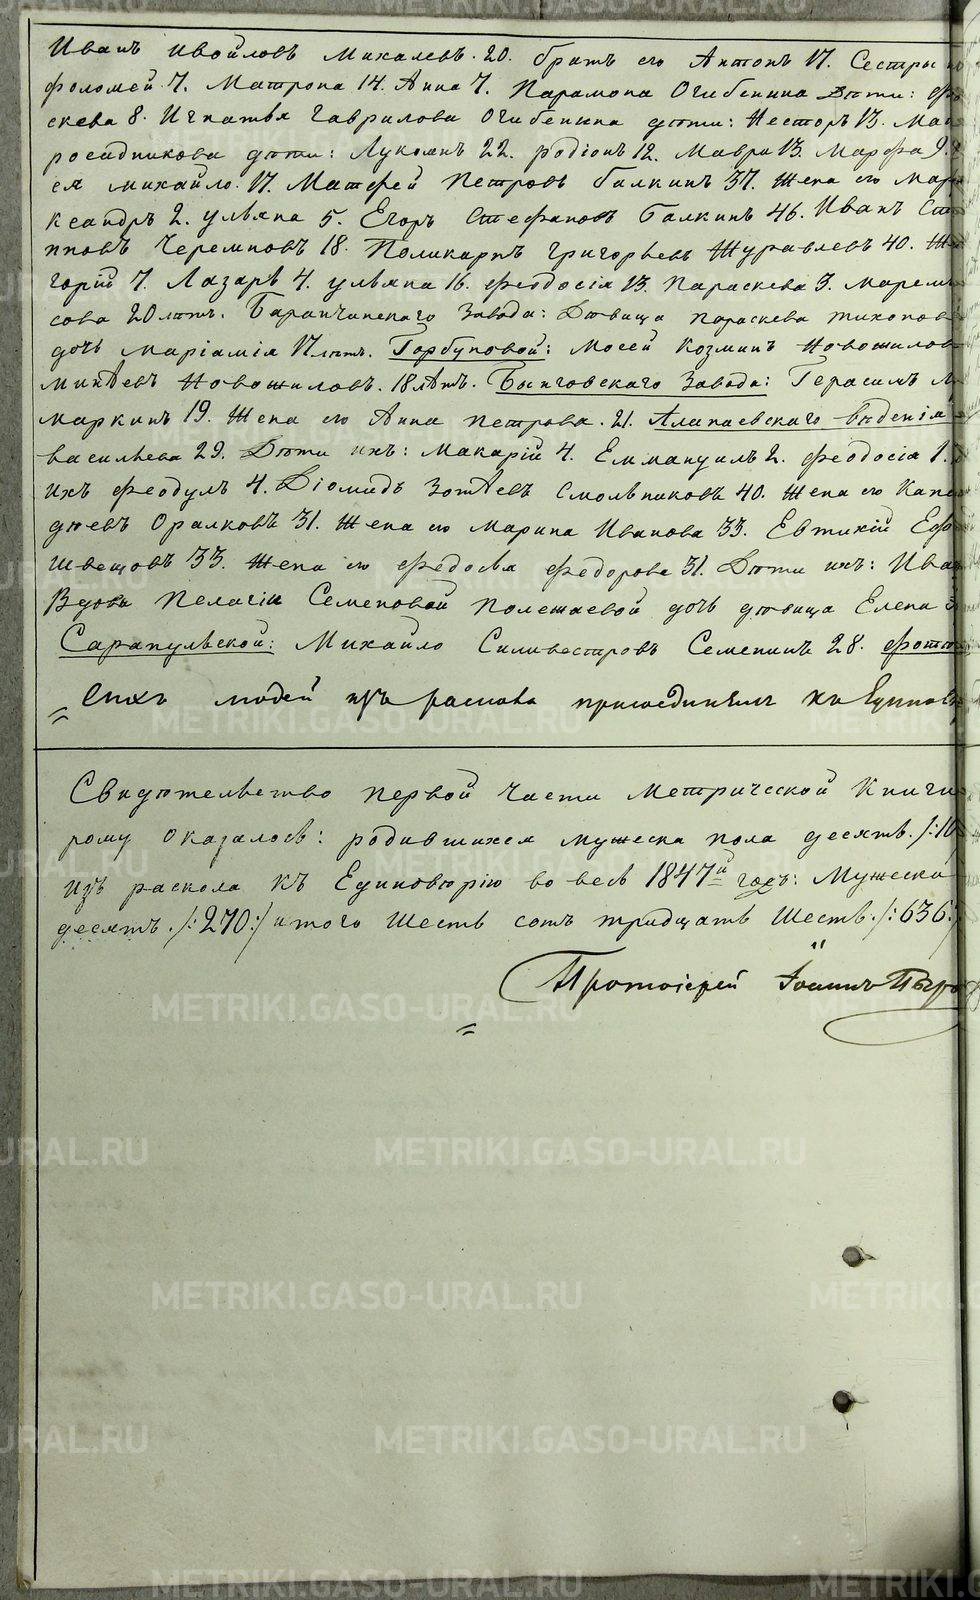 Иванъ Ивойловъ Михалевъ. 20. братъ его Антонъ 17. Сестры
фоломей 7. Матрона 14. Анна 7. Парамона Огибенина Дѣти:
скева 8. Игнатья Гаврилова Огибенина дѣти: Несторъ 13.
росадникова дѣти: Лукоянъ 22. родіонъ 12. Мавра 13. Марфа 9.
ея михайло. 17. Матфей Петровъ Галкинъ 37. Жена его Мар
ксандръ 2. ульяна 5. Егоръ Стефановъ Галкинъ 46. Иванъ
пповъ Черемновъ 18. Поликарпъ Григорьевъ Журавлевъ 40.
горій 7. Лазарь 4. ульяна 16. феодосія 13. Параскева 3.
сова 20 лѣтъ. Баранчинскаго Завода: Дѣвица параскева тихонов
дочь маріамія 17 лѣтъ. Горбуновой: Мосей Козминъ Новожилов
михѣевъ Новожиловъ. 18 лѣтъ. Бынговскаго Завода: Герасимъ
маркинъ 19. Жена его Анна петрова. 21. Алапаевскаго вѣденія
васильева 29. Дѣти ихъ: Макарій 4. Еммануилъ 2. феодосія 1.
ихъ феодулъ 4. Діомидъ Зотѣевъ Смольниковъ 40. Жена его
дѣевъ Оралковъ 31. Жена его Марина Иванова 33. Евтихій
швецовъ 33. Жена его Федосья федорова 31. Дѣти ихъ: Ива
Вдова Пелагіи Семеновой Полежаевой дочь дѣвица Елена
Сарапульской: Михайло Силивестровъ Семенинъ 28.
Сихъ людей изъ раскола присоединялъ къ Единов
Свидѣтельство первой части Метрической Книги
рому оказалось: родившихся мужеска пола десять. /:10
изъ раскола къ Единовѣрію во весь 1847й годъ: Мужеска
десятъ. /:270:/ итого Шесть сотъ тридцать Шесть. /:636:/
Протоіерей Іоаннъ Пыр
METRIKI.GASO-URAL.RU